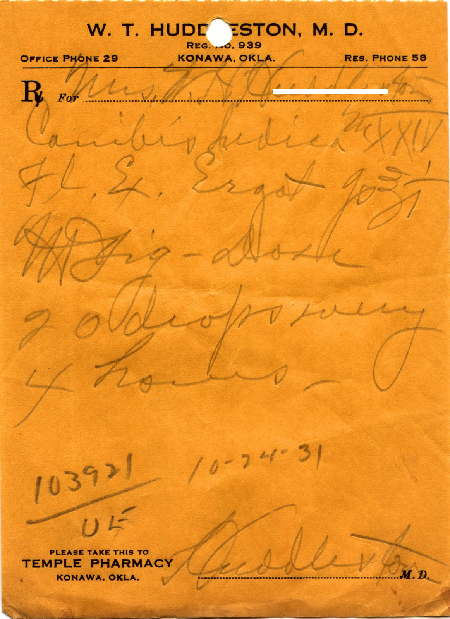 W. T. HUDDLESTON, M. D.
REG. NO. 939
OFFICE PHONE 29 KONAWA, OKLA. RES. PHONE 58
Rx For Mrs.
Canibis Indica XXIV
Fl. Ex. Ergot
Sig - Dose
20 drops every
4 hours -
103921 10-24-31
UE
PLEASE TAKE THIS TO
TEMPLE PHARMACY
KONAWA, OKLA.
Huddleston M.D.